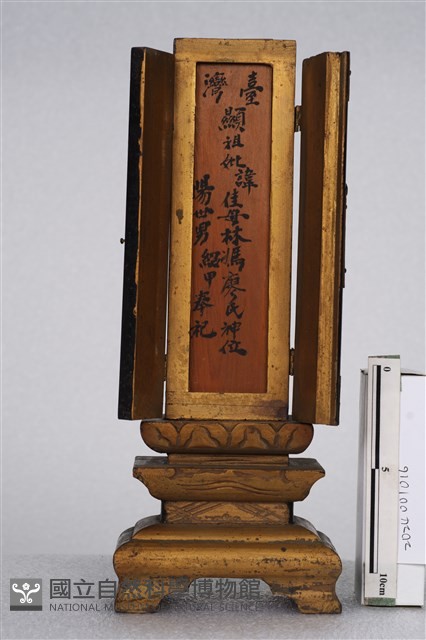 臺灣
顯祖妣諱佳母林媽廖氏神位
陽世男紹甲奉祀
0
5
10cm
國立自然科學博物館
NATIONAL MUSEUM OF NATURAL SCIENCE